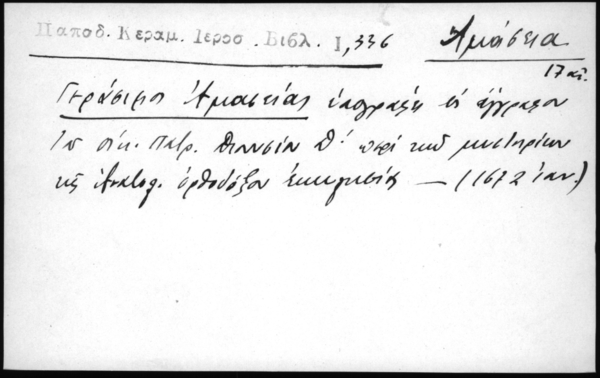 Παποδ. Κεραμ. Ιεροσ. Βιβλ. I, 336
Ἀμάσεια
17 αἰ.
Γεράσιμος Ἀμασείας ὑπογράφει εἰς ἔγγραφον
τοῦ οἰκ. Πατρ. Διονυσίου Δ΄ περὶ τῶν μυστηρίων
τῆς Ἀνατολ. ὀρθοδόξου ἐκκλησίας — (1672 ἰαν.)